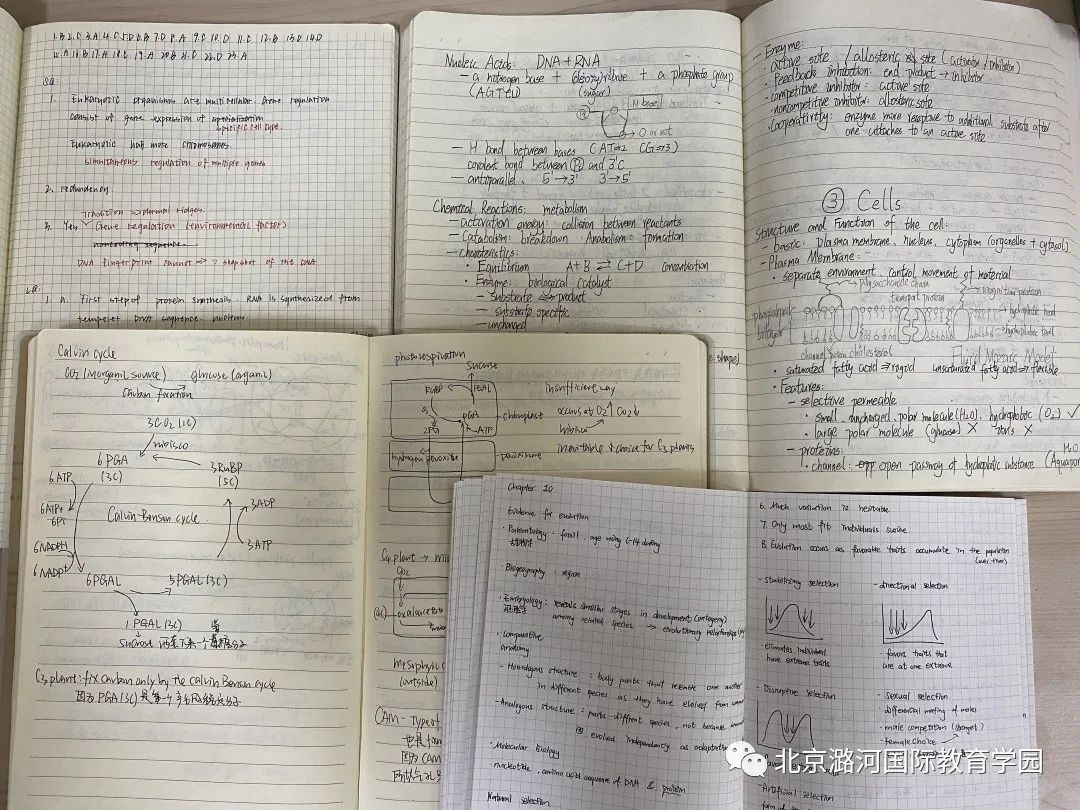 1.B 2.C 3.A 4.C 5.D 6.B 7.D 8.A 9.C 10.D 11.C 12.B 13.D 14.D
16.B 17.A 18.C 19.A 20.B 21.C 22.D 23.A
SQ:
1. Eukaryotic organisms are multicellular. Gene regulation
consist of gene expression of specialization
specific cell type.
Eukaryotic have more chromosomes.
simultaneous regulation of multiple genes
2. redundency
tradition => normal ridges.
3. Yes Gene regulation (environmental factor)
nontrating sequence
DNA fingerprint cannot => snapshot of the DNA
LQ:
1. a. First step of protein synthesis. RNA is synthesized from
DNA sequence.
Nucleic Acids: DNA + RNA
- a nitrogen base + deoxyribose + a phosphate group
(AGTCU) (sugar)
N base
O or not
- H bond between bases (AT=2 CG=3)
covalent bond between P and 3'C
- antiparallel. 5'→3' 3'→5'
Chemical Reactions: metabolism
- activation energy: collision between reactants
- Catabolism: breakdown Anabolism: formation
- charateristics:
• Equilibrium A+B ⇌ C+D concentration
• Enzyme: biological catalyst
- substrate product
- substrate specific
- unchanged
shape)
Enzyme:
• active site / allosteric site (activator/inhibitor)
• Feedback inhibition: end product → inhibitor
• competitive inhibitor: active site
• noncompetitive inhibitor: allosteric site
• Cooperativity: enzyme more receptive to additional substrate after
one attaches to an active site
③ Cells
Structure and Function of the cell:
- basic: plasma membrane, nucleus, cytoplasm (organelles + cytosol)
- Plasma Membrane:
• separate environment, control movement of material
polysaccharide chain
transport protein
recognition protein
phospholipid
bilayer
hydrophilic head
hydrophobic tail
channel protein cholesterol
Fluid Mosaic Model
• saturated fatty acid => rigid unsaturated fatty acid => flexible
• Features:
- selective permeable
• small, uncharged, polar molecule (H₂O), hydrophobic (O₂) ✓
• large polar molecule (glucose) X ions X
- proteins:
• channel: open passway of hydrophilic substance
H₂O
Calvin cycle
CO₂ (inorganic source) glucose (organic)
Carbon fixation
3CO₂ (1C)
rubisco
6 PGA
(3C)
3RuBP
(5C)
6 ATP
6 ADP+
6Pi
3ADP
Calvin-Benson cycle
3ATP
6 NADPH
6 NADP⁺
6PGAL 5PGAL (3C)
1 PGAL (3C)
sucrose
C₃ plant: fix carbon only by the Calvin Benson cycle
因为 PGA (3C) 是第一个
photorespiration
sucrose
RuBP PGAL
O₂ PGA
2PG ATP
chloroplast
hydrogen peroxide
peroxisome
insufficient way
occurs at O₂↑ CO₂↓
rubisco
inevitable choice for C₃ plants
C₄ plant →
CO₂
(4C) oxaloacetate
mesophyll
(outside)
CAM - Type of
因为 CAM
Chapter 10
Evidence for evolution
• Paleontology: fossil, age using C-14 dating
• Biogeography: region
• Embryology: reveals similar stages in development (ontogeny)
among related species → evolutionary relationships
• Comparative
anatomy
- Homologous structure: body parts that resemble one another
in different species as they have evolved from
- Analogous structure: parts - different species, not because
evolved independently as adaptation
• Molecular biology
- nucleotide, amino acid sequence of DNA & protein
Natural selection
6. Much variation is heritable
7. Only most fit individuals survive.
8. Evolution occurs as favorable traits accumulate in the population
(over time)
- Stabilizing selection
- directional selection
- eliminates individual
have extreme traits
- favors traits that
are at one extreme
- Disruptive selection
Sexual selection
differential mating of males
- male competition (strongest)
- female choice
- Artificial selection
北京潞河国际教育学园